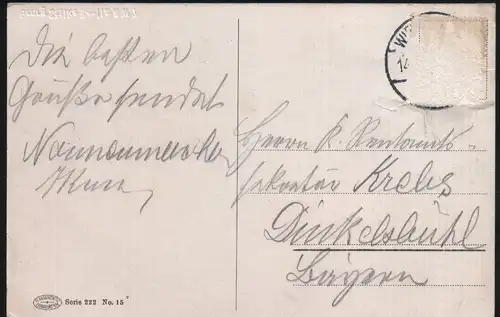 Die besten
Grüße sendet
Herrn k. Rentamts-
sekretär Krebs
Dinkelsbühl
Bayern
Serie 222 No. 15